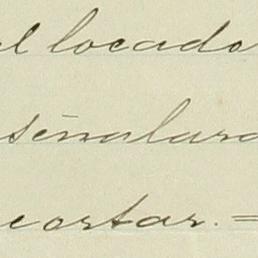 el locado
señalara
cortar. =